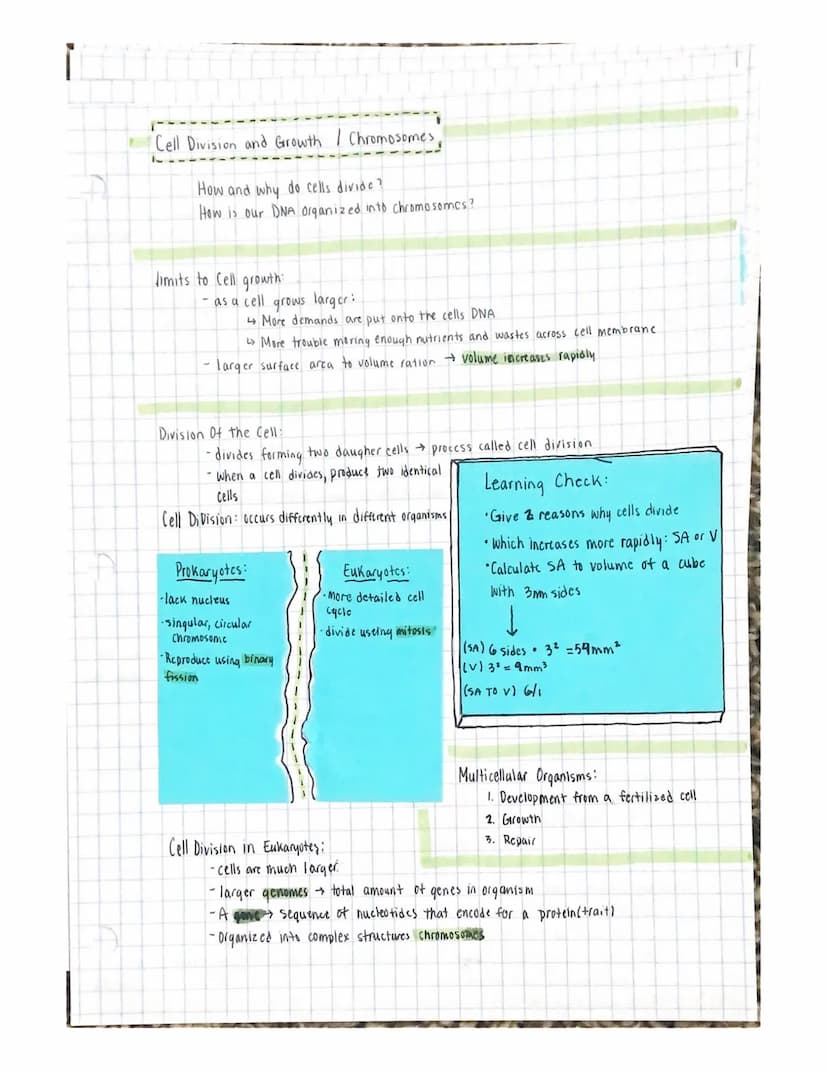 Cell Division and Growth / Chromosomes
How and why do cells divide?
How is our DNA organized into chromosomes?
limits to Cell growth:
- as a cell grows larger:
↳ More demands are put onto the cells DNA
↳ More trouble moving enough nutrients and wastes across cell membrane
- larger surface area to volume ration → volume increases rapidly
Division Of the Cell:
- divides forming two daugher cells → process called cell division
- when a cell divides, product two identical
cells
Cell Division: occurs differently in different organisms
Prokaryotes:
- lack nucleus
- singular, circular
chromosome
- Reproduce using binary
fission
Eukaryotes:
· More detailed cell
cycle
· divide useing mitosis
Learning Check:
· Give 2 reasons why cells divide
· Which increases more rapidly: SA or V
· Calculate SA to volume of a cube
with 3mm sides
↓
(SA) 6 sides • 3² = 54mm²
(V) 3² = 9mm³
(SA TO V) 6/1
Multicellular Organisms:
1. Development from a fertilized cell
2. Growth
3. Repair
Cell Division in Eukaryotes:
- cells are much larger.
- larger genomes → total amount of genes in organism
- A gene → sequence of nucleotides that encode for a protein(trait)
- Organized into complex structures chromosomes